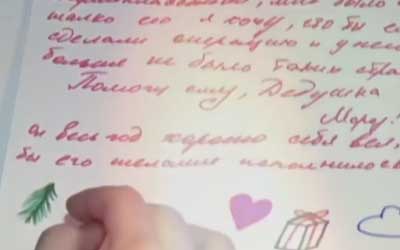 мне было
жалко его я хочу, что бы ему
сделали операцию и у него
больше не было таких стра
Помоги ему, Дедушка
Мороз!
он весь год хорошо себя вел,
бы его желание исполнилось